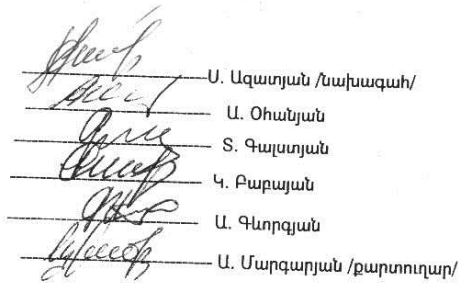 Ս. Ազատյան /նախագահ/
Ա. Օհանյան
Տ. Գալստյան
Կ. Բաբայան
Ա. Գևորգյան
Ա. Մարգարյան /քարտուղար/